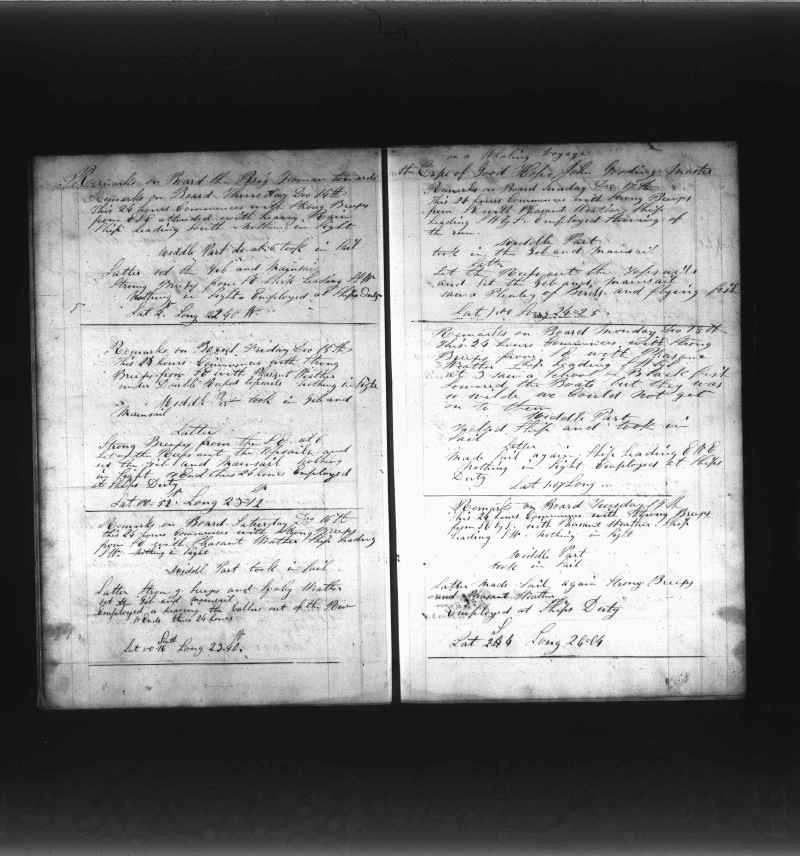 Remarks on Board the Brig Yeoman towards
Remarks on Board Thursday Dec 14th
This 24 hours Commences with Strong Breeps
from ESE attended with heavy Rain
Ship Leading South Nothing in Sight
Middle Part do at 6 took in Sail
Latter set the Jeb and Mainsail
Strong Breeps from Ship Leading
Nothing in Sight Employed at Ships Duty
Lat 2 Long 22.40 W
Remarks on Board Friday Dec 15th
This 24 hours Commences with Strong
Breeps from SE with Pleasant Wether
under Double Reefed topsails Nothing in Sight
Middle Part took in Jeb and
Mainsail
Latter
Strong Breeps from the S E at 6
Let out the Reefs out the Topsails and
set the Jeb and Mainsail Nothing
in Sight So Ends this 24 hours Employed
at Ships Duty
Lat 00.52 Long 23-12
Remarks on Board Saturday Dec 16th
this 24 hours Commences with Strong Breeps
from with Pleasant Weather Ship Leading
SW nothing in Sight
Middle Part took in Sail
Latter Strong breeps and Weather
set the Jeb and mainsail
Employed a heaving the out of the Run
So Ends this 24 hours
South
Lat 00 16 Long 23.40 W
on a Whaling Voyage
th Cape of Good Hope John Master
Remarks on Board Sunday Dec 17th
This 24 hours Commences with Strong Breeps
from SE with Pleasant Weather Ship
Leading Employed of
the run
Middle Part
took in the Jeb and Mainsail
Latter
Let the Reefs out the Topsails
and set the Jeb and Mainsail
saw a Plenty of and flying fish
Lat 1.44 Long 24-25
Remarks on Board Monday Dec 18th
This 24 hours Commences with Strong
Breeps from SE with Pleasant
Weather Ship Leading
at 3 saw a School of Black fish
Lowered the Boats but they was
so wilde we Could Not get
on to them
Middle Part
Ship and took in
Sail
Latter
Made Sail again Ship Leading
Nothing in Sight Employed at Ships
Duty
Lat Long
Remarks on Board Tuesday 19th
This 24 hours Commences with Strong Breeps
from with Pleasant Weather Ship
Leading SW nothing in Sight
Middle Part
took in Sail
Latter made Sail again Strong Breeps
and Pleasant Weather
Employed at Ships Duty
Lat Long 26-04